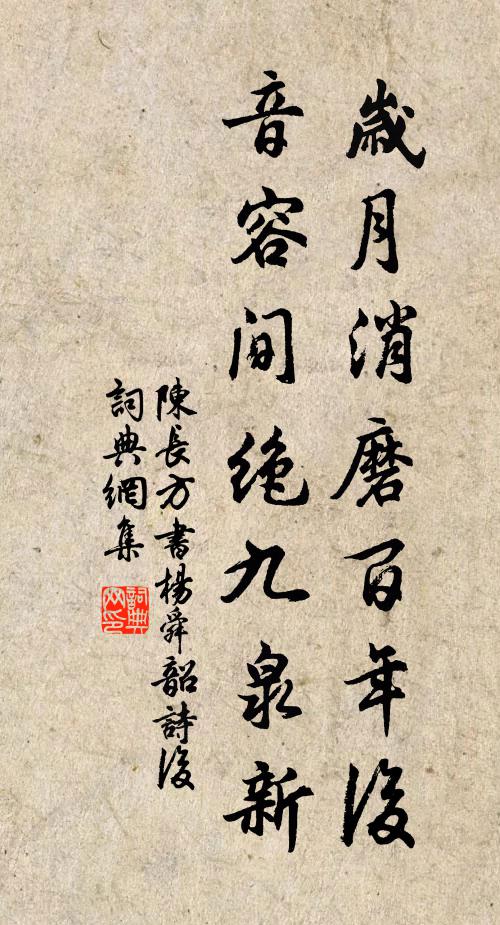 歲月消磨百年後
音容間絶九泉新
陳長方書楊舜韶詩後
詞典網集
詞典網印